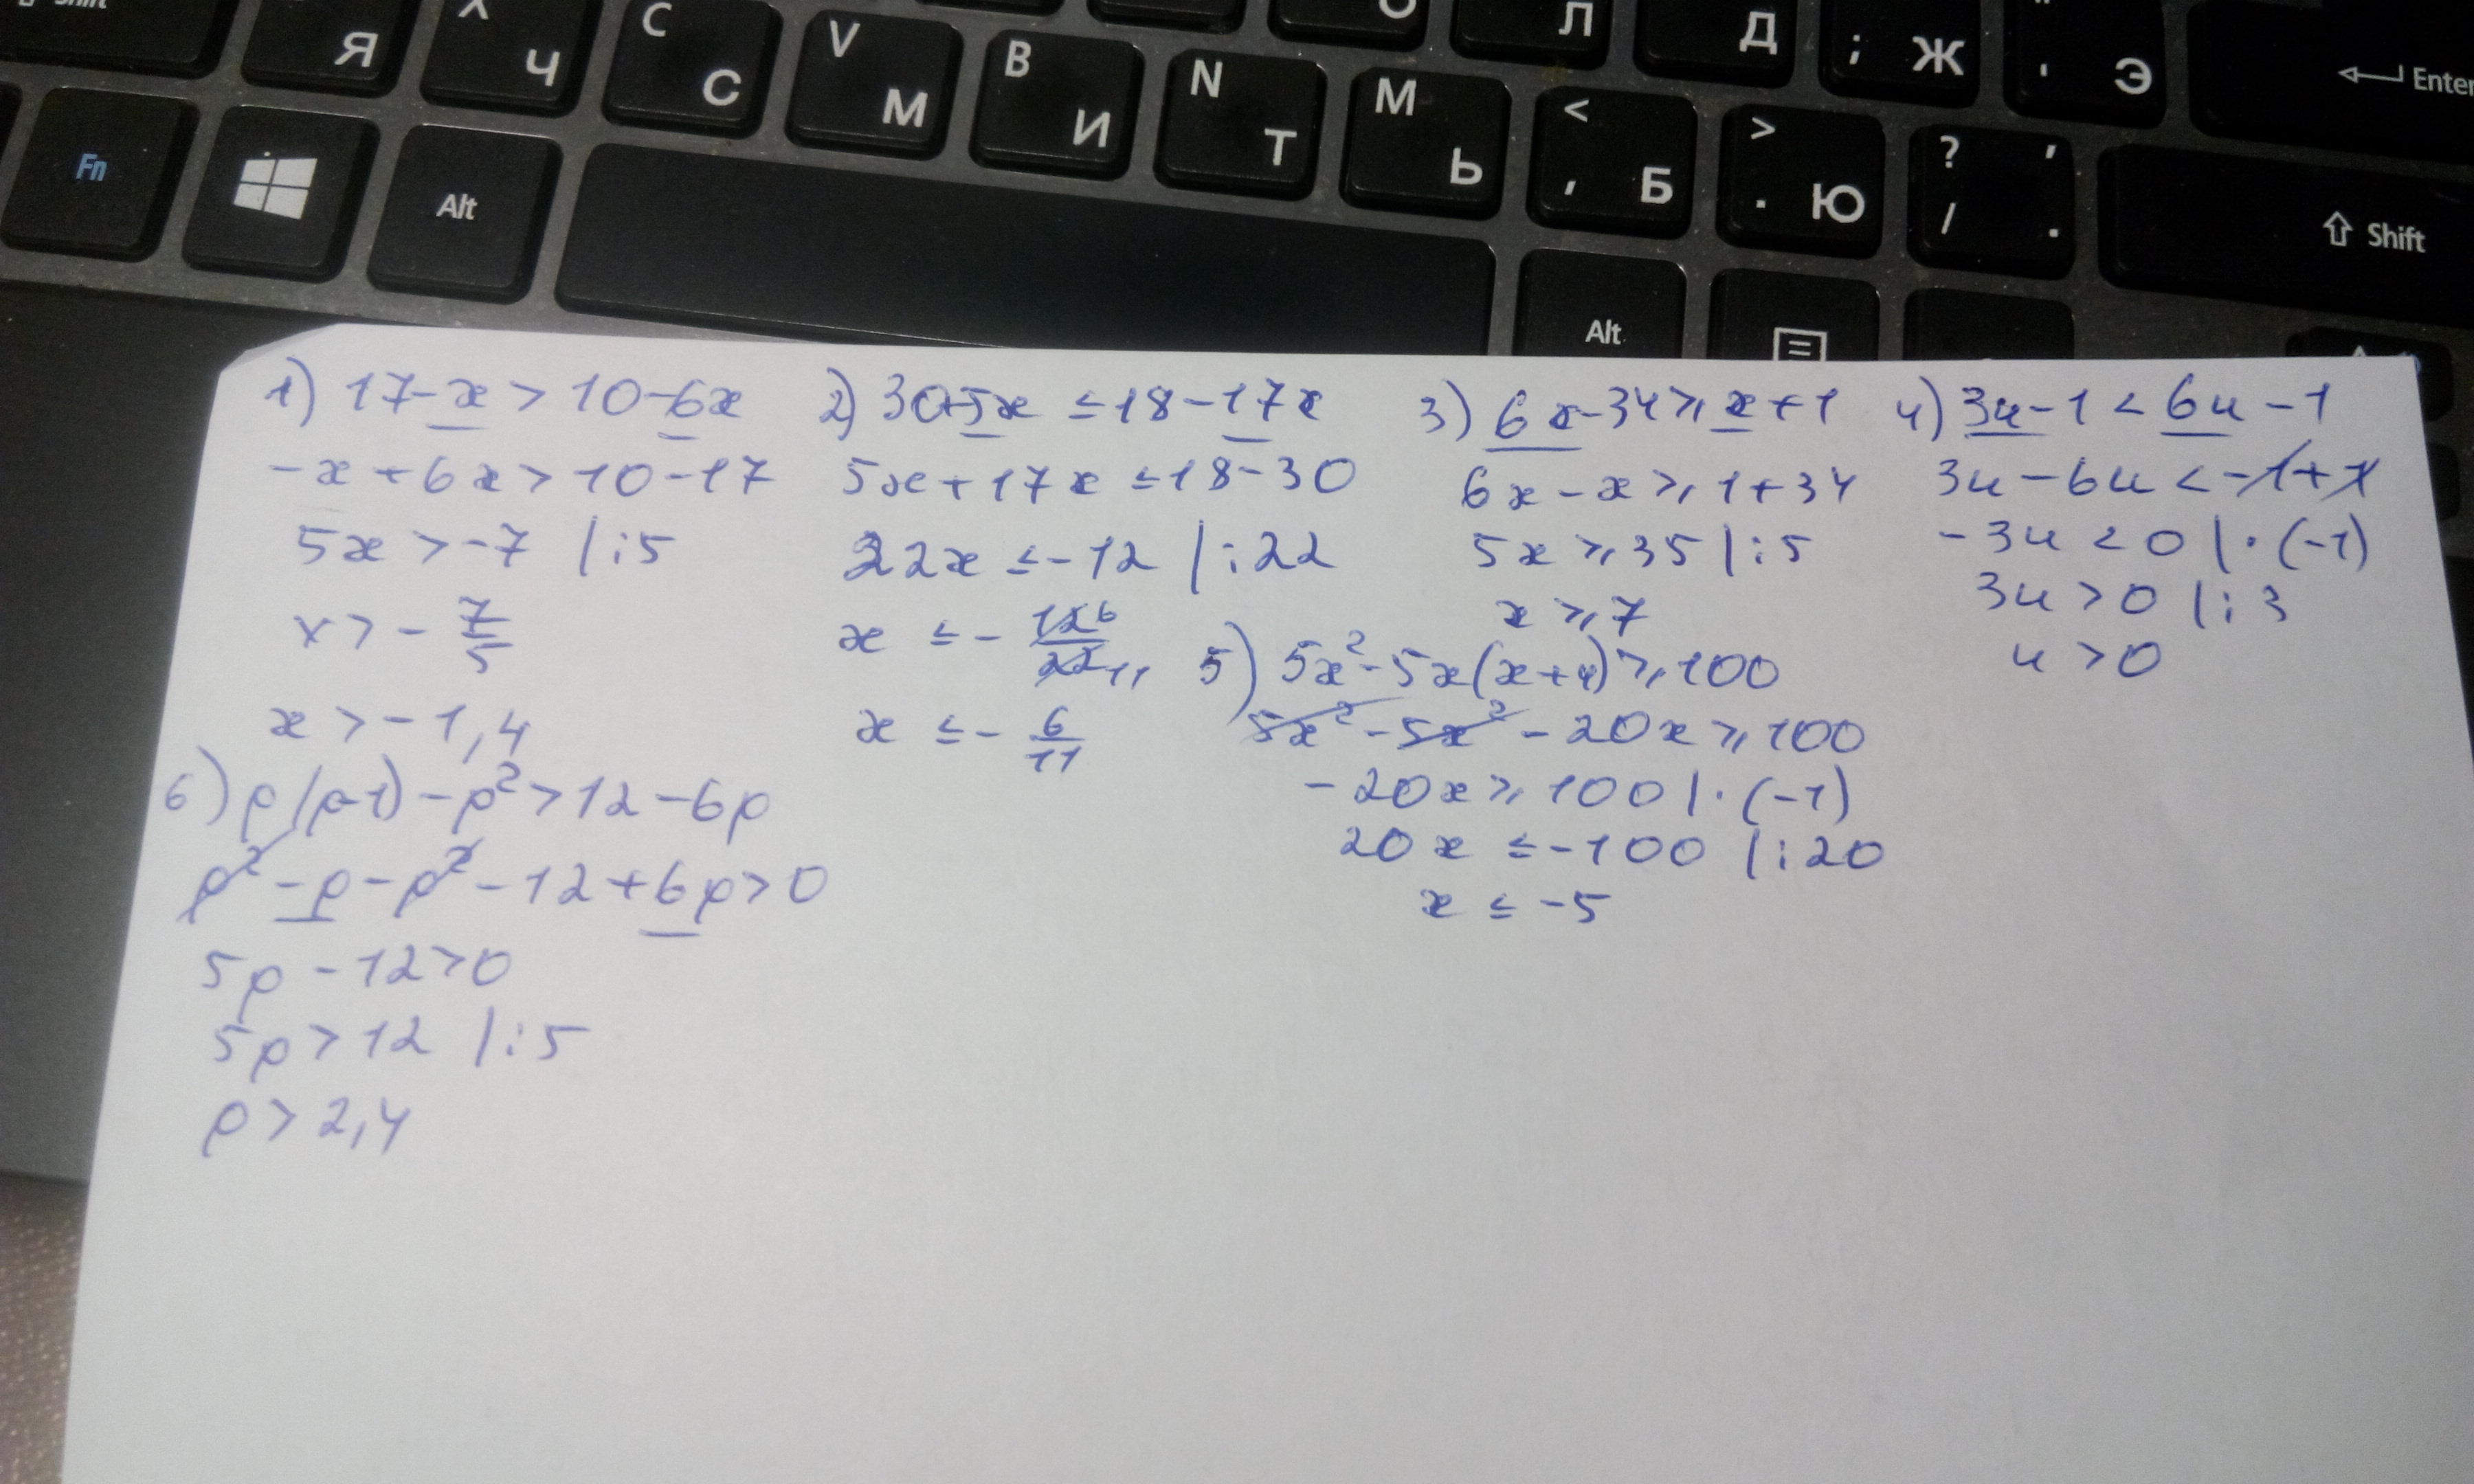 Shift
Я X Ч C С V М B И N Т M Ь < , Б > . Ю ? , / .
О Л Д ; Ж " ' Э Enter
Fn Alt Alt Shift
1) 17-x > 10-6x
-x+6x > 10-17
5x > -7 |:5
x > - 7/5
x > -1,4
2) 30+5x ≤ 18-17x
5x+17x ≤ 18-30
22x ≤ -12 |:22
x ≤ - 12 6/22 11
x ≤ - 6/11
3) 6x-34 ⩾ x+1
6x-x ⩾ 1+34
5x ⩾ 35 |:5
x ⩾ 7
4) 3u-1 < 6u-1
3u-6u < -1+1
-3u < 0 |·(-1)
3u > 0 |:3
u > 0
5) 5x²-5x(x+4) ⩾ 100
5x²-5x²-20x ⩾ 100
-20x ⩾ 100 |·(-1)
20x ≤ -100 |:20
x ≤ -5
6) p(p-1)-p² > 12-6p
p²-p-p²-12+6p > 0
5p-12 > 0
5p > 12 |:5
p > 2,4